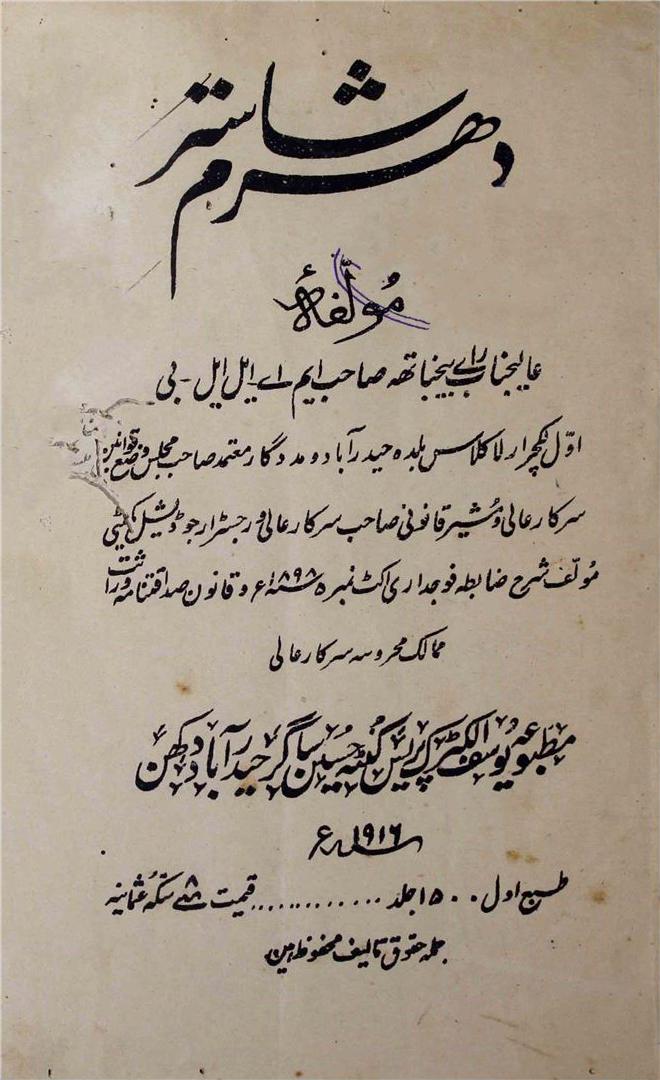 دھرم شاستر
مؤلّفۂ
عالیجناب راے بیجناتھ صاحب ایم اے ۔ ایل ایل ۔ بی
اوّل لکچرار لا کلاس بلدہ حیدرآباد و مددگار معتمد صاحب مجلس وضع قوانین
سرکار عالی و مشیر قانونی صاحب سرکار عالی و رجسٹرار جوڈیشل کمیٹی
مؤلّف شرح ضابطہ فوجداری اکٹ نمبر ۵ سنہ ۱۸۹۸ء و قانون صداقتنامہ وراثت
ممالک محروسہ سرکار عالی
مطبوعہ یوسف الکٹرک پریس کٹہ حسین ساگر حیدرآباد دکھن
سنہ ۱۹۱۶ء
طبع اول ۱۵۰۰ جلد ............ قیمت سکہ عثمانیہ
جملہ حقوق تالیف محفوظ ہیں